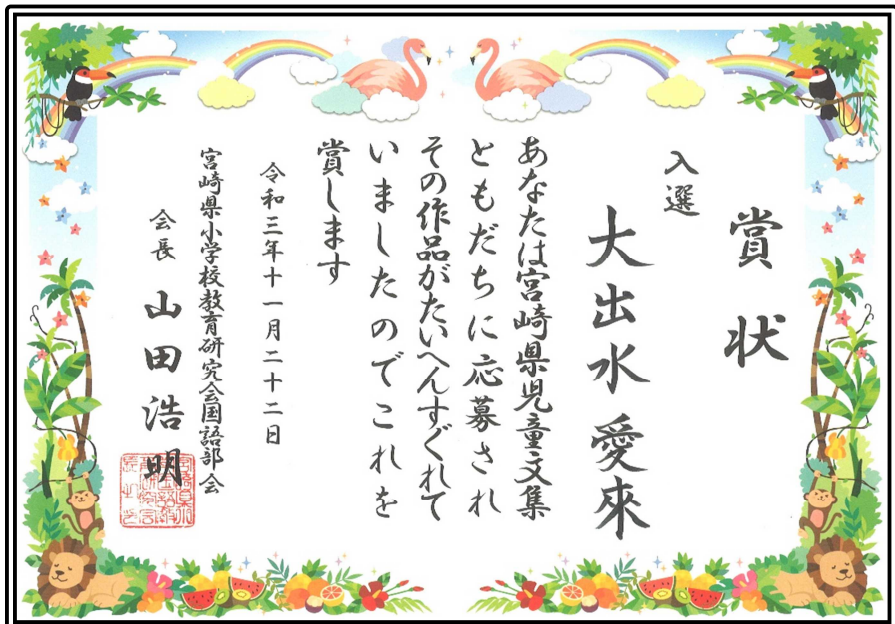 賞状
入選
大出水愛來
あなたは宮崎県児童文集
ともだちに応募され
その作品がたいへんすぐれて
いましたのでこれを
賞します
令和三年十一月二十二日
宮崎県小学校教育研究会国語部会
会長 山田浩明